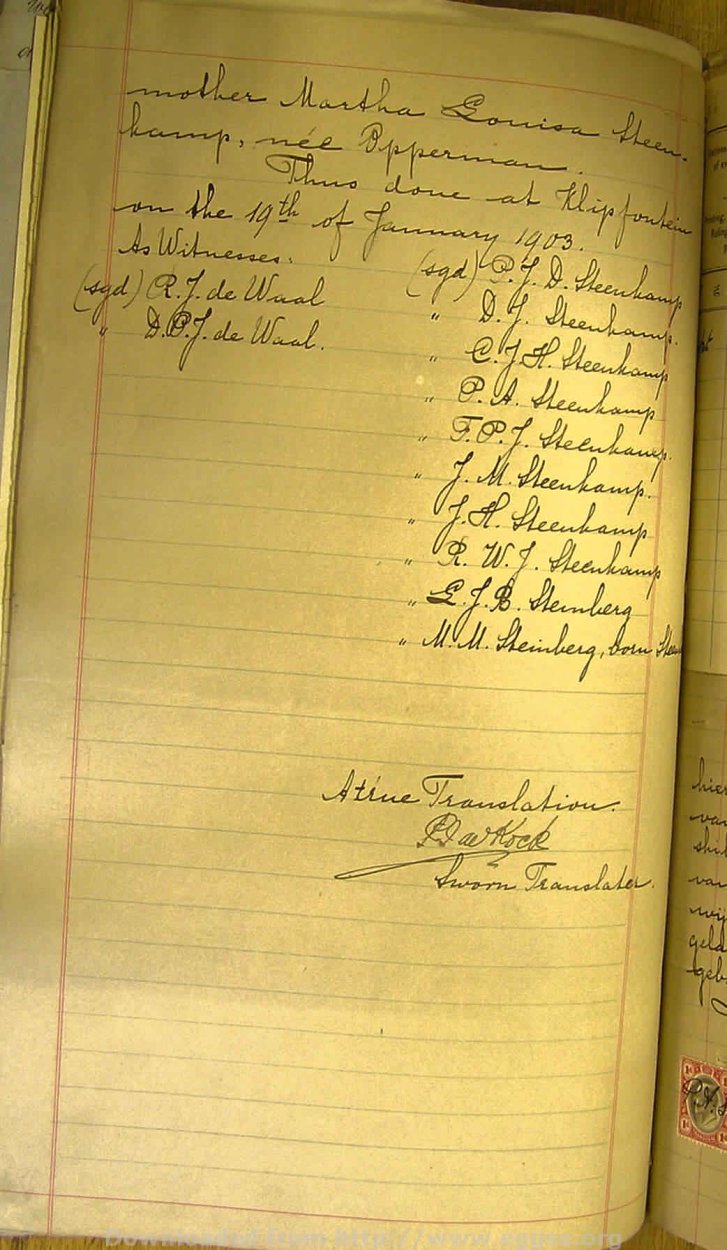 mother Martha Louisa Steen-
kamp, née Opperman.
Thus done at Klipfontein
on the 19th of January 1903.
As Witnesses:
(sgd) R. J. de Waal
" D.P.J. de Waal.
(sgd) P. J. D. Steenkamp
" D. J. Steenkamp.
" C. J. H. Steenkamp
" P. A. Steenkamp
" F. P. J. Steenkamp.
" J. M. Steenkamp.
" J. H. Steenkamp
" R. W. J. Steenkamp
" G. J. B. Steinberg
" M. M. Steinberg, born
A true Translation.
de Kock
Sworn Translater.
hier
van
van
wij
geld
geb
P.A.
Downloaded from http://www.eggsa.org